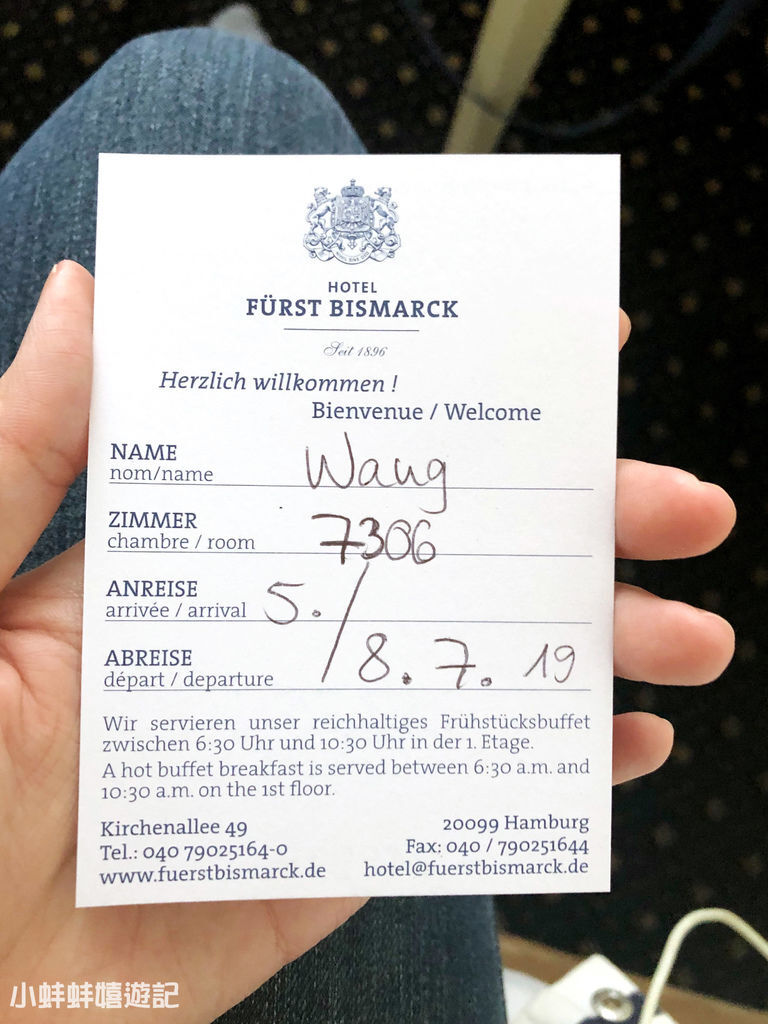 HOTEL
FÜRST BISMARCK
Seit 1896
Herzlich willkommen !
Bienvenue / Welcome
NAME
nom/name Wang
ZIMMER
chambre / room 7306
ANREISE
arrivée / arrival 5. /
ABREISE
départ / departure 8. 7. 19
Wir servieren unser reichhaltiges Frühstücksbuffet
zwischen 6:30 Uhr und 10:30 Uhr in der 1. Etage.
A hot buffet breakfast is served between 6:30 a.m. and
10:30 a.m. on the 1st floor.
Kirchenallee 49 20099 Hamburg
Tel.: 040 79025164-0 Fax: 040 / 790251644
www.fuerstbismarck.de hotel@fuerstbismarck.de
小蚌蚌嬉遊記